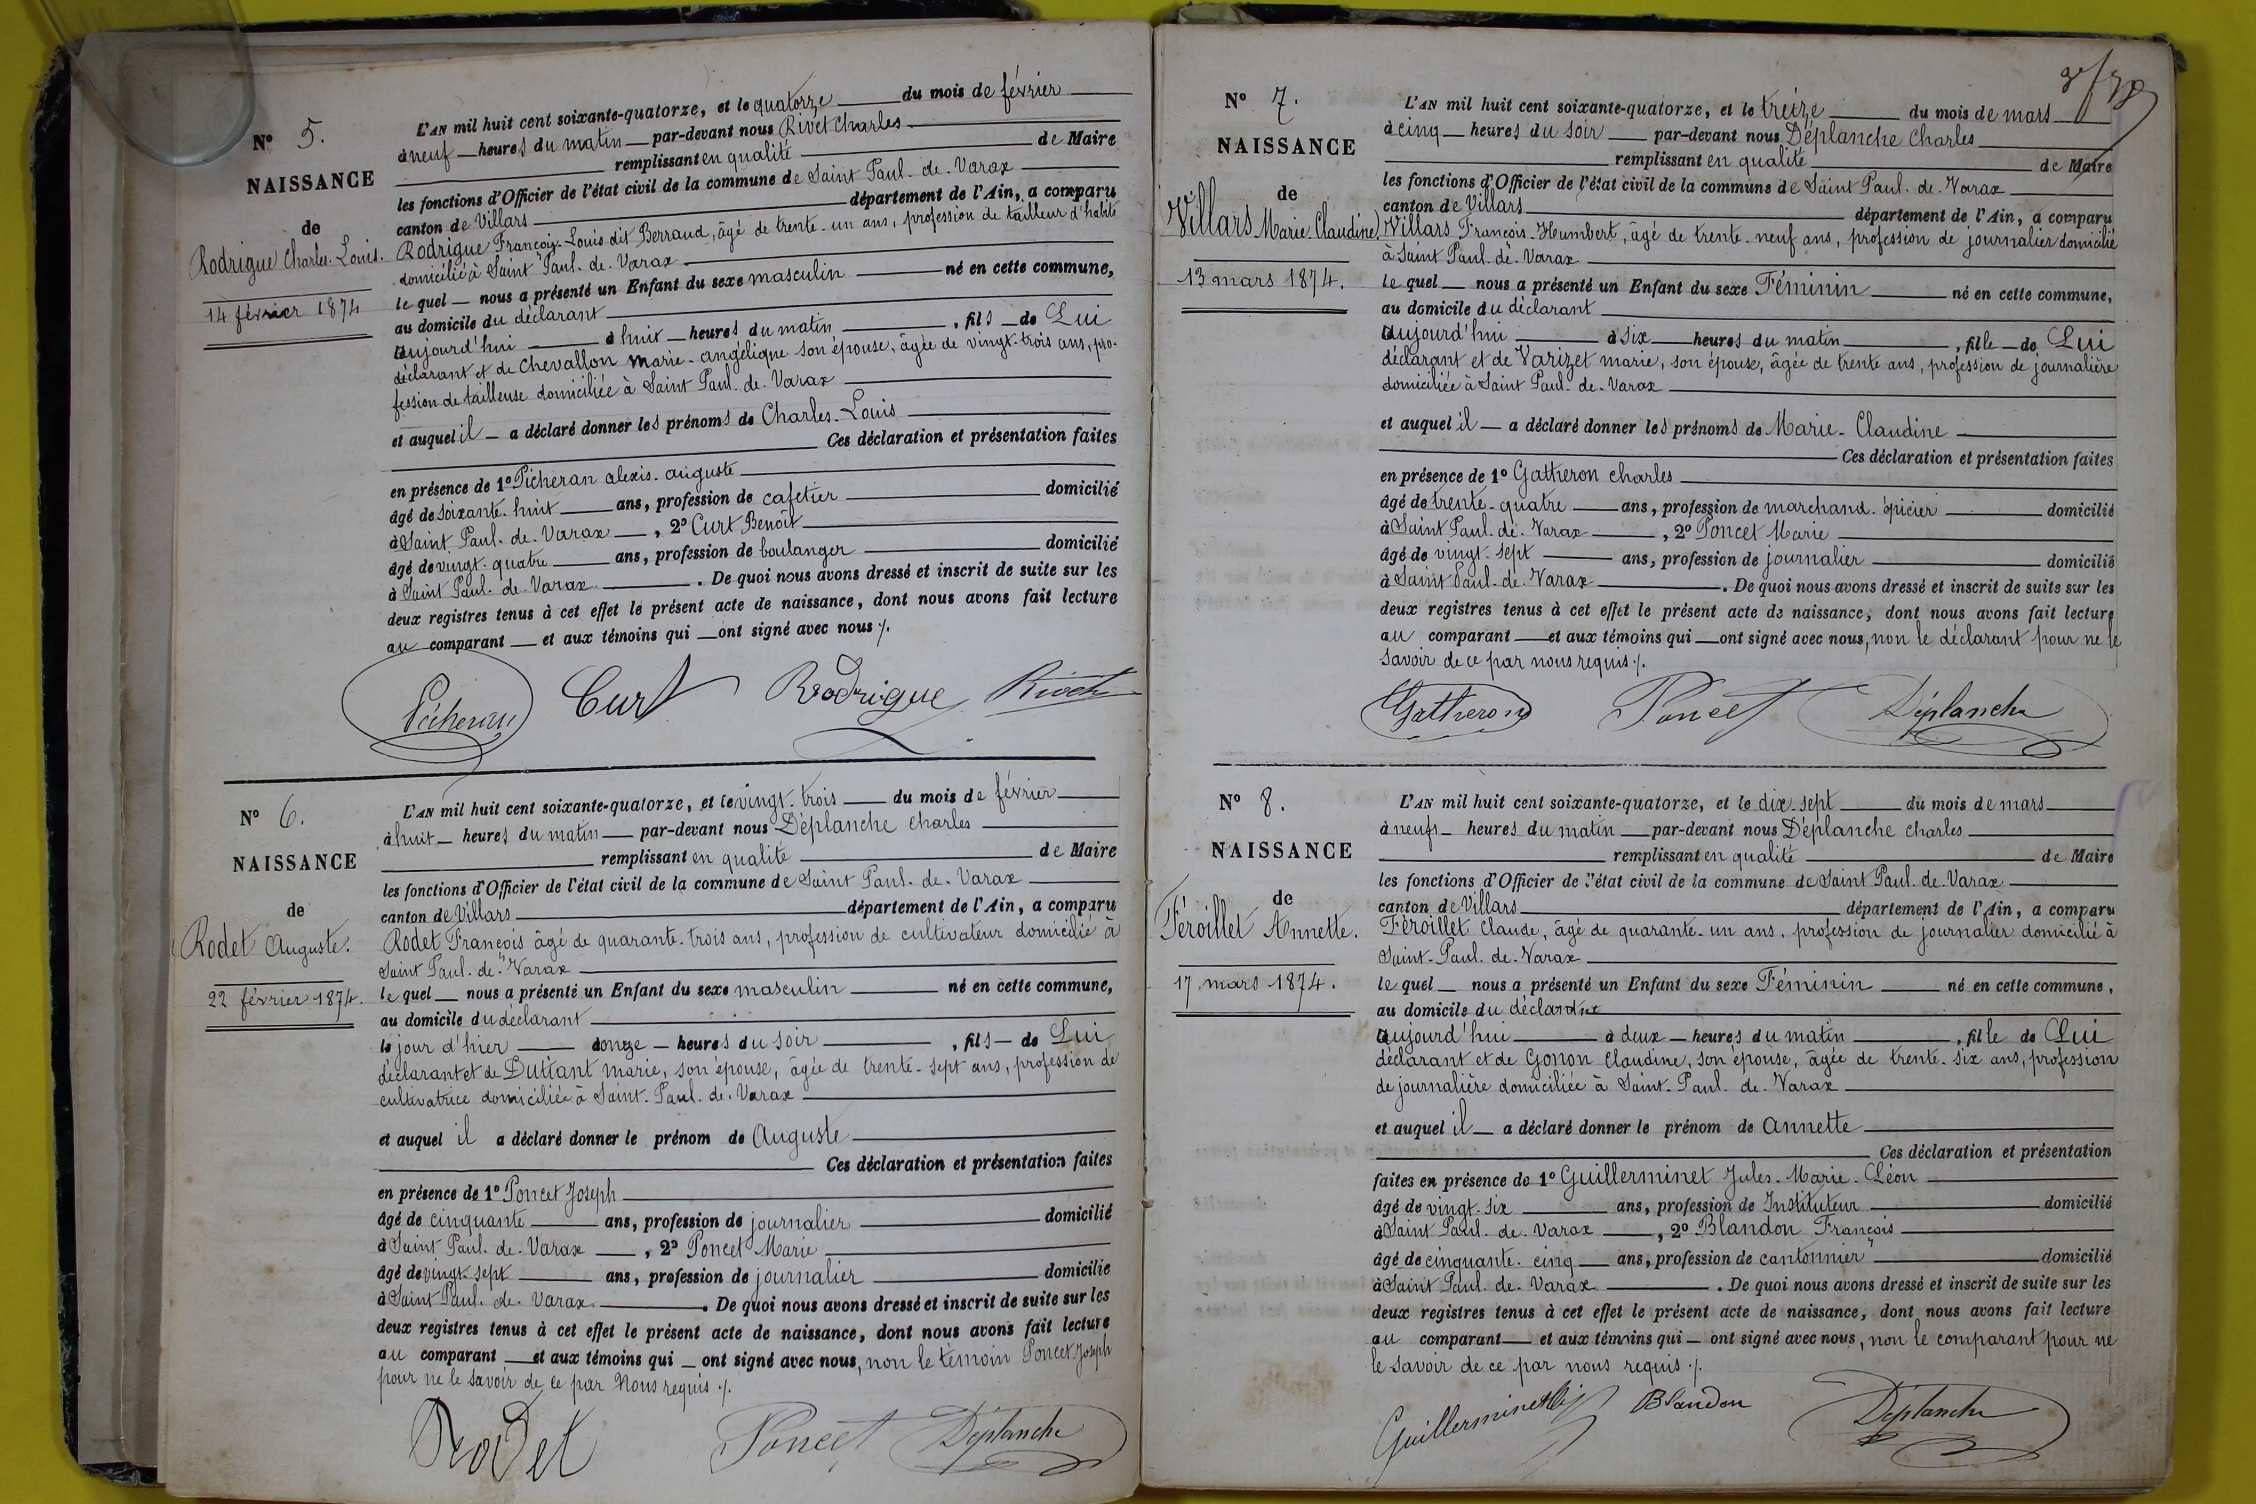 N° 5.
NAISSANCE
de
Rodrigue Charles-Louis.
14 février 1874
L'AN mil huit cent soixante-quatorze, et le quatorze du mois de février
à neuf heures du matin par-devant nous Rivet Charles
remplissant en qualité de Maire
les fonctions d'Officier de l'état civil de la commune de Saint Paul-de-Varax
canton de Villars département de l'Ain, a comparu
Rodrigue François-Louis dit Berraud, âgé de trente-un ans, profession de tailleur d'habits
domicilié à Saint Paul-de-Varax
le quel nous a présenté un Enfant du sexe masculin né en cette commune,
au domicile du déclarant
aujourd'hui à huit heures du matin, fils de Lui
déclarant et de Chevallon Marie-angélique son épouse, âgée de vingt-trois ans, pro-
fession de tailleuse domiciliée à Saint Paul-de-Varax
et auquel il a déclaré donner les prénoms de Charles-Louis
Ces déclaration et présentation faites
en présence de 1° Picheran alexis-auguste
âgé de soixante-huit ans, profession de cafetier domicilié
à Saint Paul-de-Varax, 2° Curt Benoît
âgé de vingt-quatre ans, profession de boulanger domicilié
à Saint Paul-de-Varax. De quoi nous avons dressé et inscrit de suite sur les
deux registres tenus à cet effet le présent acte de naissance, dont nous avons fait lecture
au comparant et aux témoins qui ont signé avec nous ./.
Picheran Curt Rodrigue Rivet
N° 6.
NAISSANCE
de
Rodet Auguste.
22 février 1874.
L'AN mil huit cent soixante-quatorze, et le vingt-trois du mois de février
à huit heures du matin par-devant nous Déplanche Charles
remplissant en qualité de Maire
les fonctions d'Officier de l'état civil de la commune de Saint Paul-de-Varax
canton de Villars département de l'Ain, a comparu
Rodet François âgé de quarante-trois ans, profession de cultivateur domicilié à
Saint Paul-de-Varax
le quel nous a présenté un Enfant du sexe masculin né en cette commune,
au domicile du déclarant
le jour d'hier à onze heures du soir, fils de Lui
déclarant et de Duttant marie, son épouse, âgée de trente-sept ans, profession de
cultivatrice domiciliée à Saint-Paul-de-Varax
et auquel il a déclaré donner le prénom de Auguste
Ces déclaration et présentation faites
en présence de 1° Poncet Joseph
âgé de cinquante ans, profession de journalier domicilié
à Saint Paul-de-Varax, 2° Poncet Marie
âgé de vingt-sept ans, profession de journalier domicilié
à Saint Paul-de-Varax. De quoi nous avons dressé et inscrit de suite sur les
deux registres tenus à cet effet le présent acte de naissance, dont nous avons fait lecture
au comparant et aux témoins qui ont signé avec nous, non le témoin Poncet Joseph
pour ne le savoir de ce par Nous requis ./.
Rodet Poncet Déplanche
N° 7.
NAISSANCE
de
Villars Marie-Claudine
13 mars 1874.
L'AN mil huit cent soixante-quatorze, et le treize du mois de mars
à cinq heures du soir par-devant nous Déplanche Charles
remplissant en qualité de Maire
les fonctions d'Officier de l'état civil de la commune de Saint Paul-de-Varax
canton de Villars département de l'Ain, a comparu
Villars François-Humbert, âgé de trente-neuf ans, profession de journalier domicilié
à Saint Paul-de-Varax
le quel nous a présenté un Enfant du sexe Féminin né en cette commune,
au domicile du déclarant
aujourd'hui à six heures du matin, fille de Lui
déclarant et de Varizet marie, son épouse, âgée de trente ans, profession de journalière
domiciliée à Saint Paul-de-Varax
et auquel il a déclaré donner les prénoms de Marie-Claudine
Ces déclaration et présentation faites
en présence de 1° Gatheron Charles
âgé de trente-quatre ans, profession de marchand-épicier domicilié
à Saint Paul-de-Varax, 2° Poncet Marie
âgé de vingt-sept ans, profession de journalier domicilié
à Saint Paul-de-Varax. De quoi nous avons dressé et inscrit de suite sur les
deux registres tenus à cet effet le présent acte de naissance, dont nous avons fait lecture
au comparant et aux témoins qui ont signé avec nous, non le déclarant pour ne le
savoir de ce par nous requis ./.
Gatheron Poncet Déplanche
N° 8.
NAISSANCE
de
Féroillet Annette.
17 mars 1874.
L'AN mil huit cent soixante-quatorze, et le dix-sept du mois de mars
à neufs heures du matin par-devant nous Déplanche Charles
remplissant en qualité de Maire
les fonctions d'Officier de l'état civil de la commune de Saint Paul-de-Varax
canton de Villars département de l'Ain, a comparu
Féroillet Claude, âgé de quarante-un ans, profession de journalier domicilié à
Saint-Paul-de-Varax
le quel nous a présenté un Enfant du sexe Féminin né en cette commune,
au domicile du déclarant
aujourd'hui à deux heures du matin, fille de Lui
déclarant et de Gonon Claudine, son épouse, âgée de trente-six ans, profession
de journalière domiciliée à Saint-Paul-de-Varax
et auquel il a déclaré donner le prénom de Annette
Ces déclaration et présentation
faites en présence de 1° Guillerminet Jules-Marie-Léon
âgé de vingt-six ans, profession de Instituteur domicilié
à Saint Paul-de-Varax, 2° Blandon François
âgé de cinquante-cinq ans, profession de cantonnier domicilié
à Saint Paul-de-Varax. De quoi nous avons dressé et inscrit de suite sur les
deux registres tenus à cet effet le présent acte de naissance, dont nous avons fait lecture
au comparant et aux témoins qui ont signé avec nous, non le comparant pour ne
le savoir de ce par nous requis ./.
Guillerminet Blandon Déplanche